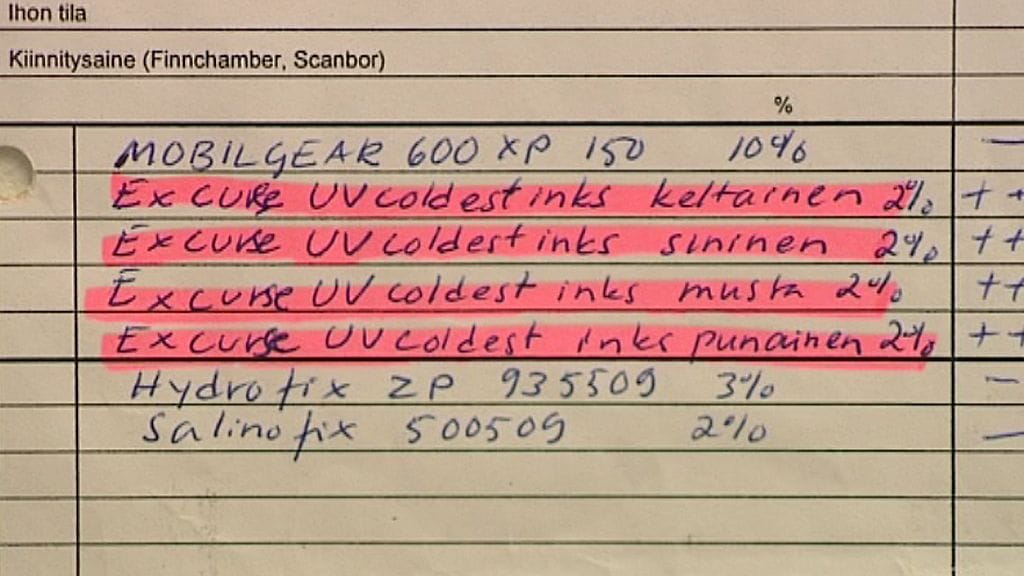 Ihon tila
Kiinnitysaine (Finnchamber, Scanbor)
%
MOBILGEAR 600 XP 150 10% —
Excurse UV coldest inks keltainen 2% ++
Excurse UV coldest inks sininen 2% ++
Excurse UV coldest inks musta 2% ++
Excurse UV coldest inks punainen 2% ++
Hydrofix ZP 935509 3% —
Salinofix 500509 2% —